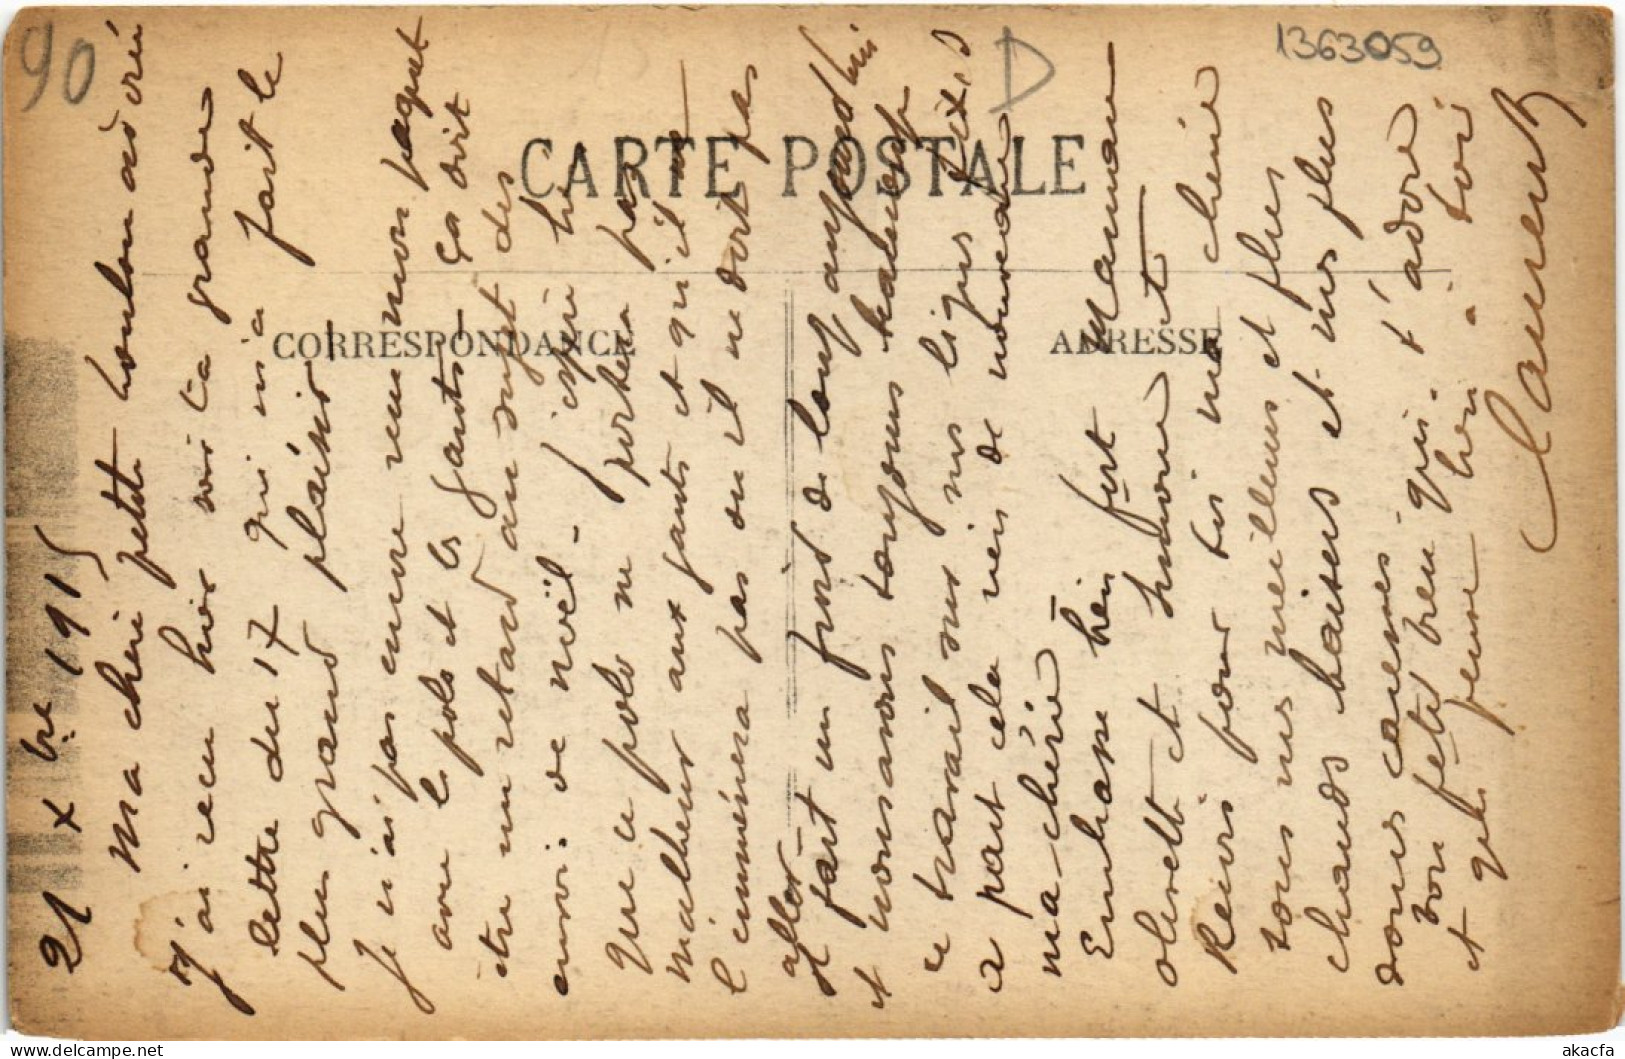 90
1363059
D
CARTE POSTALE
CORRESPONDANCE
ADRESSE
21 Xbre 1915
Ma chérie petite adoré
J'ai reçu hier soir ta grande
lettre du 17 qui m'a fait le
plus grand plaisir
Je n'ai pas encore reçu mon paquet
avec le polo et les gants - ça doit
être un retard au sujet des
envoi de noël - J'espère
Que ce polo ne portera pas
malheur aux gants et qu'il
l'emmènera pas où il ne doit pas
aller
Il fait un froid de loup aujourd'hui
et nous avons toujours beaucoup
de travail sur nos lignes
a part cela rien de nouveau
ma-chérie
Embrasse bien fort Maman
et
Reçois pour toi ma chérie
tous mes meilleurs et plus
chauds baisers et mes plus
douces caresses
ton bien qui t'adore
et pense bien a toi
Laurent
akacfa